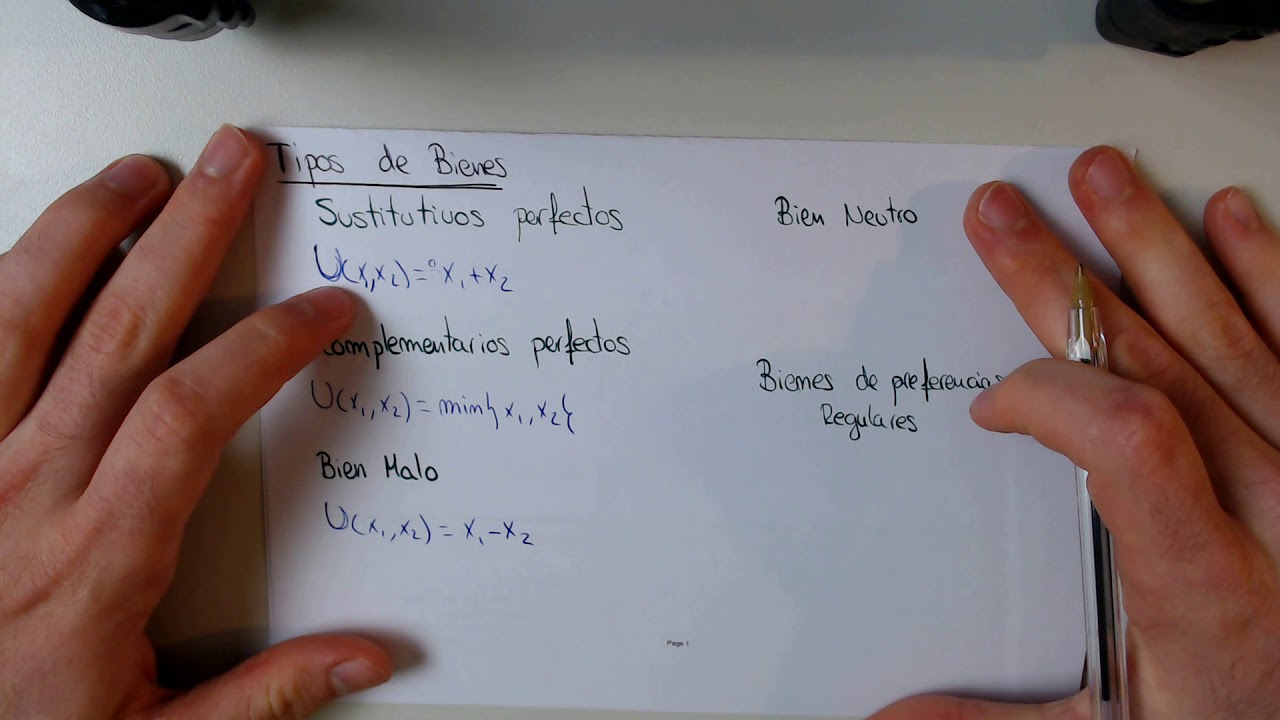 Tipos de Bienes
Sustitutivos perfectos
U(x₁,x₂)=x₁+x₂
Complementarios perfectos
U(x₁,x₂)=min{x₁,x₂{
Bien Malo
U(x₁,x₂)=x₁-x₂
Bien Neutro
Bienes de preferencias
Regulares
Page 1